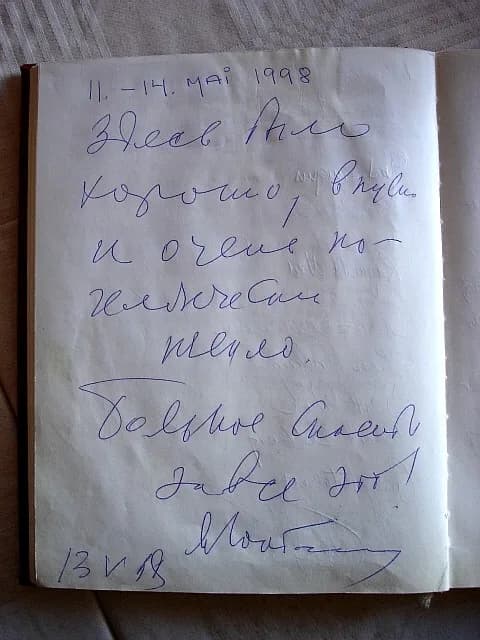 11. - 14. MAI 1998
Здесь было
хорошо, вкусно
и очень по-
человечески
тепло.
Большое спасибо
за все это!
13 V 98